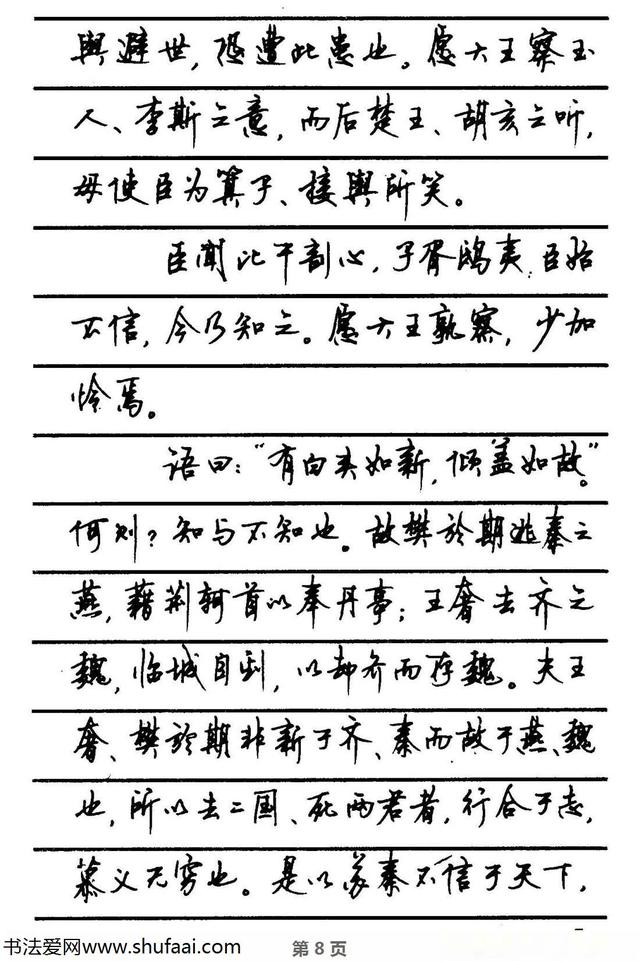 舆避世，恐遭此患也。愿大王察玉
人、李斯之意，而后楚王、胡亥之听，
毋使臣为箕子、接舆所笑。
臣闻比干剖心，子胥鸱夷，臣始
不信，今乃知之。愿大王孰察，少加
怜焉。
语曰：“有白头如新，倾盖如故”。
何则？知与不知也。故樊於期逃秦之
燕，藉荆轲首以奉丹事；王奢去齐之
魏，临城自刭，以却齐而存魏。夫王
奢、樊於期非新于齐、秦而故于燕、魏
也，所以去二国、死两君者，行合于志，
慕义无穷也。是以苏秦不信于天下，
书法爱网www.shufaai.com
第 8 页